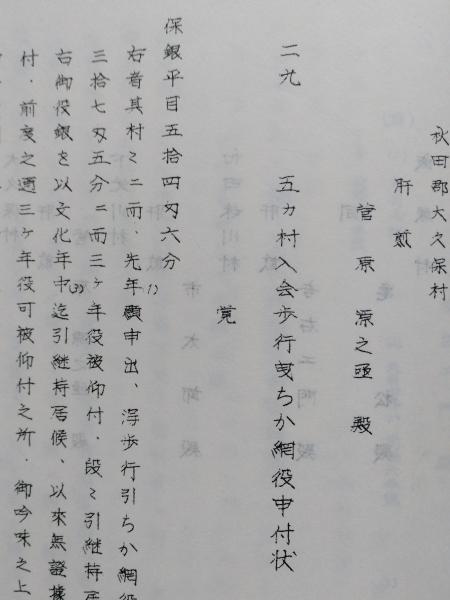 秋田郡大久保村
肝煎
菅原源之亟殿
二九 五カ村入会歩行曳ちか網役申付状
覚
保銀平目五拾四匁六分
右者其村々ニ而、先年願申出、浮歩行引ちか網役
三拾七匁五分ニ而三ヶ年役被仰付、段々引継持居
右御役銀を以文化年中迄引継持居候、以来無證據
付、前度之通三ヶ年役可被仰付之所、御吟味之上